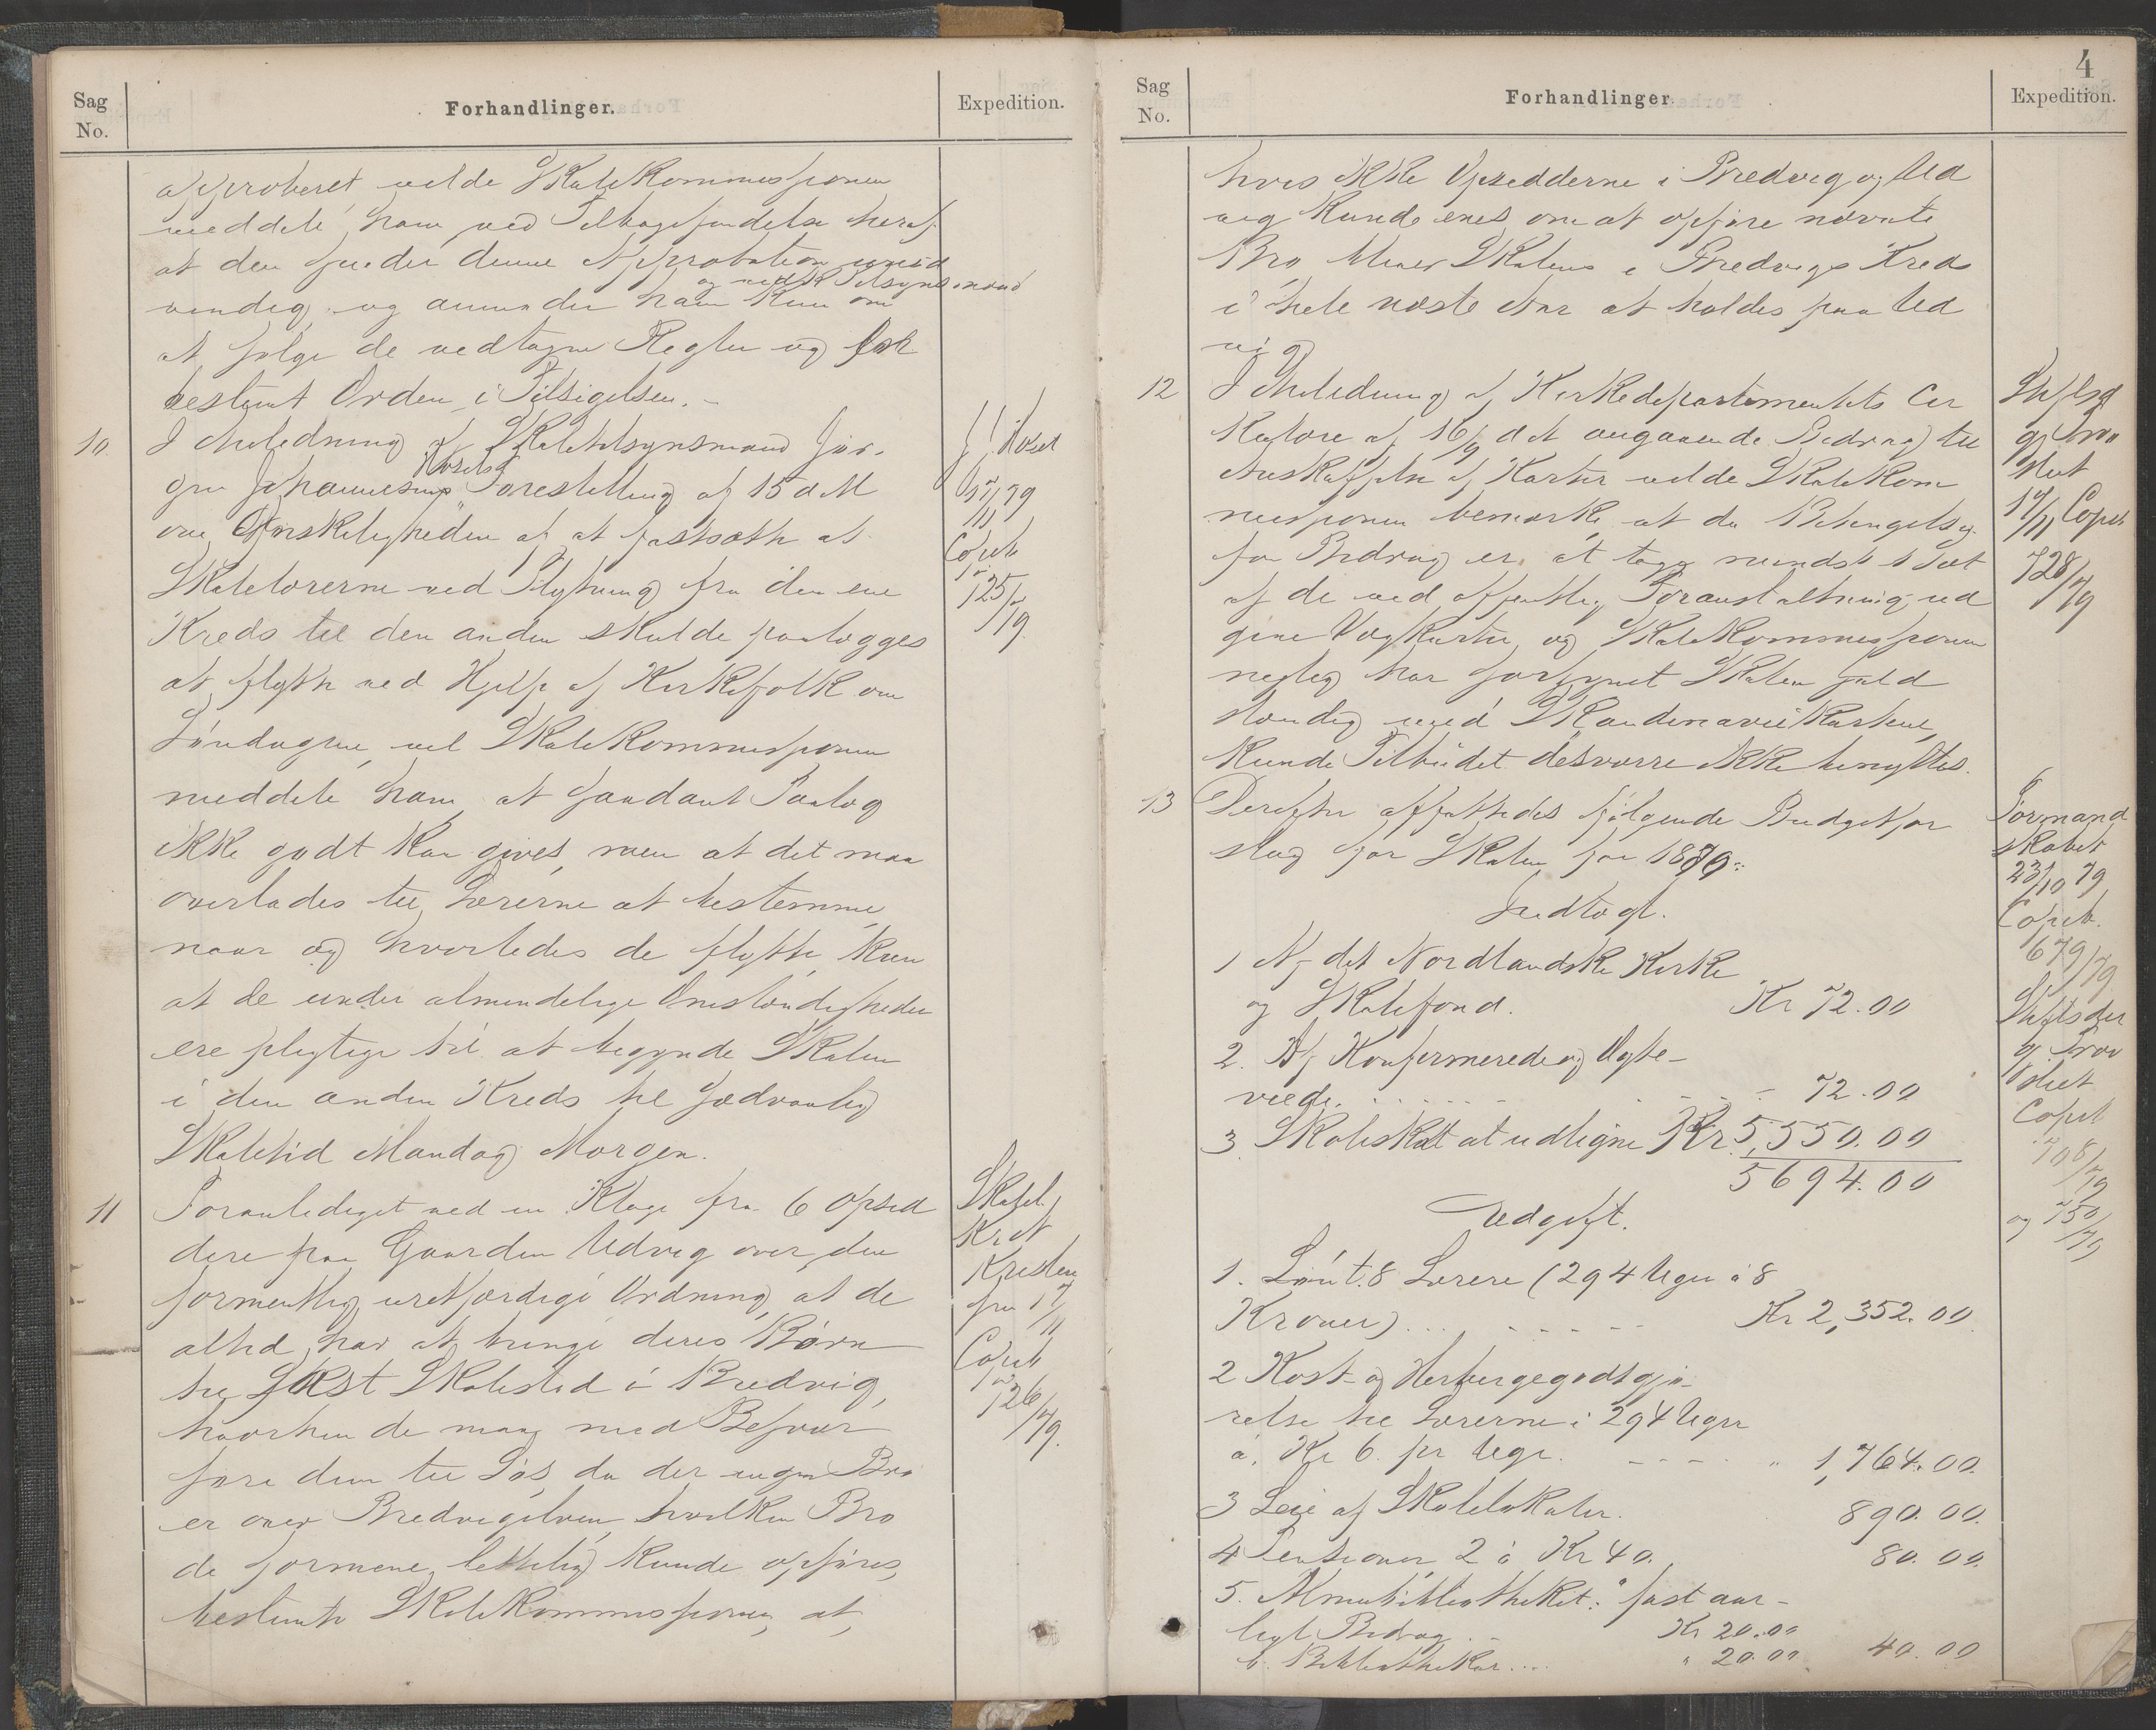 Sag
No.
Forhandlinger.
Expedition.
approberet, vilde Skolekommissionen
meddele ham ved Tilbagesendelse heraf
at den finder denne Approbation unød
og vedk Tilsynsmænd
vendig og anmoder ham kun om
at følge de vedtagne Regler og fast
bestemt Orden i Tilsigelsen. -
10. I Anledning af Skoletilsynsmand Jør-
Hosets
gen Johannesens Forestilling af 15 d M
om Ønskeligheden af at fastsætte at
Skolelærerne ved Flytning fra den ene
Kreds til den anden skulde paalægges
at flytte ved Hjelp af Kirkefolk om
Søndagene, vil Skolekommissionen
meddele ham, at saadant Paalæg
ikke godt kan gives, men at det maa
overlades til Lærerne at bestemme,
naar og hvorledes de flytte, kun
at de under almindelige Omstændigheder
ere pligtige til at begynde Skolen
i den anden Kreds til sædvanlig
Skoletid Mandag Morgen.
J. J. Hoset
17/11 79
Copieb
725/79.
11 Foranlediget ved en Klage fra 6 Opsid
dere paa Gaarden Udvig over den
formentlig uretfærdige Ordning, at de
altid har at bringe deres Børn
til Skolested i Bredvig,
hvorhen de maa med Besvær
føre dem til Søs, da der ingen Bro
er over Bredvigelven, hvilken Bro
de formene lettelig kunde opføres,
bestemte Skolekommissionen, at,
17/11
Copieb
726/79.
4
Sag
No.
Forhandlinger
Expedition.
hvis ikke Opsidderne i Bredvig og Ud
vig kunde enes om at opføre nævnte
Bro bliver Skolen i Bredvigs Kreds
i hele næste Aar at holdes paa Ud
vig
12 I Anledning af Kirkedepartementets Cir
kulære af 16/9 d A angaaende Bidrag til
Anskaffelse af Karter vilde Skolekom
missionen bemærke, at da Betingelsen
for Bidrag er, at tage mindst 1 Sæt
af de ved offentlig Foranstaltning ud
givne Vægkarter, og Skolekommissionen
nylig har forsynet Skolen fuld
stændig med Skandinaviekartene,
kunde Tilbudet desværre ikke benyttes.
Stiftsd
gj Prov
stiet
17/11 Copieb
728/79
13 Derefter affattedes følgende Budgetfor
slag for Skolen for 1880:
Indtægt.
1 Af det Nordlandske Kirke
og Skolefond. Kr 72.00
2. Af Konfirmerede og Ægte-
viede. - 72.00
3. Skoleskat at udligne Kr. 5,550.00
5694.00
Formand
skabet
23/10 79
Copieb.
679/79
Stiftsdir
gj. Prov
stiet
Copieb
708/79
og 750/79
Udgift.
1. Løn t. 8 Lærere (294 Uger á 8
Kroner) ... Kr 2,352.00
2 Kost- og Herbergegodtgjø-
relse til Lærerne i 294 Uger
á Kr 6. pr Uge. " 1,764.00.
3 Leie af Skolelokaler. 890.00.
4 Pensioner 2 á Kr 40. 80.00.
5. Almuebibliotheket: fast aar-
ligt Bidrag .. Kr 20.00
b. Bibliothekar.... " 20.00 40.00